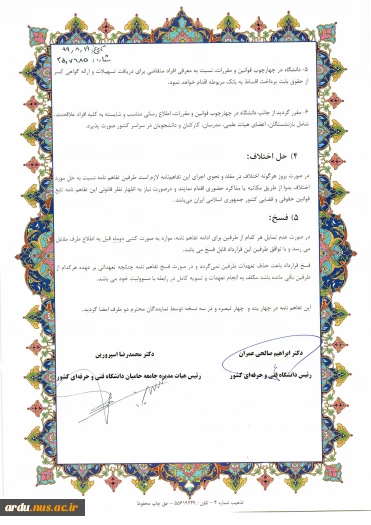 تاریخ ۹۹،۸،۲۱
۵- دانشگاه در چهارچوب قوانین و مقررات، نسبت به معرفی افراد متقاضی برای دریافت تسهیلات و ارائه گواهی کسر
از حقوق بابت پرداخت اقساط به بانک مربوطه اقدام خواهد نمود.
۶- مقرر گردید از جانب دانشگاه در چهارچوب قوانین و مقررات، اطلاع رسانی مناسب و شایسته به کلیه افراد علاقه‌مند
شامل بازنشستگان، اعضای هیات علمی، مدرسان، کارکنان و دانشجویان در سراسر کشور صورت پذیرد.
۴) حل اختلاف:
در صورت بروز هرگونه اختلاف در مفاد و نحوی اجرای این تفاهم‌نامه لازم است طرفین تفاهم نامه نسبت به حل مورد
اختلاف بدوا از طریق مکاتبه یا مذاکره حضوری اقدام نمایند و درصورت نیاز به اظهار نظر قانونی این تفاهم نامه تابع
قوانین حقوقی و قضایی کشور جمهوری اسلامی ایران می‌باشد.
۵) فسخ:
در صورت عدم تمایل هر کدام از طرفین برای ادامه تفاهم نامه، موارد به صورت کتبی دوماه قبل به اطلاع طرف مقابل
می رسد و با توافق طرفین این قرارداد قابل فسخ می باشد.
فسخ قرارداد باعث حذف تعهدات طرفین نمی‌گردد و در صورت فسخ تفاهم نامه چنانچه تعهداتی بر عهده هرکدام از
طرفین باقی مانده باشد مکلف به انجام تعهدات و تسویه کامل در رابطه با مسوولیت خود می باشد.
این تفاهم نامه در چهار بند و چهار تبصره و در سه نسخه توسط نمایندگان محترم دو طرف امضا گردید.
دکتر ابراهیم صالحی عمران
دکتر محمدرضا اسپرورین
رئیس دانشگاه فنی و حرفه‌ای کشور
رئیس هیات مدیره جامعه حامیان دانشگاه فنی و حرفه‌ای کشور
تذهیب شماره ۴ - تلفن: ۵۵۶۱۹۲۴۹ - حق چاپ محفوظ
ardu.nus.ac.ir